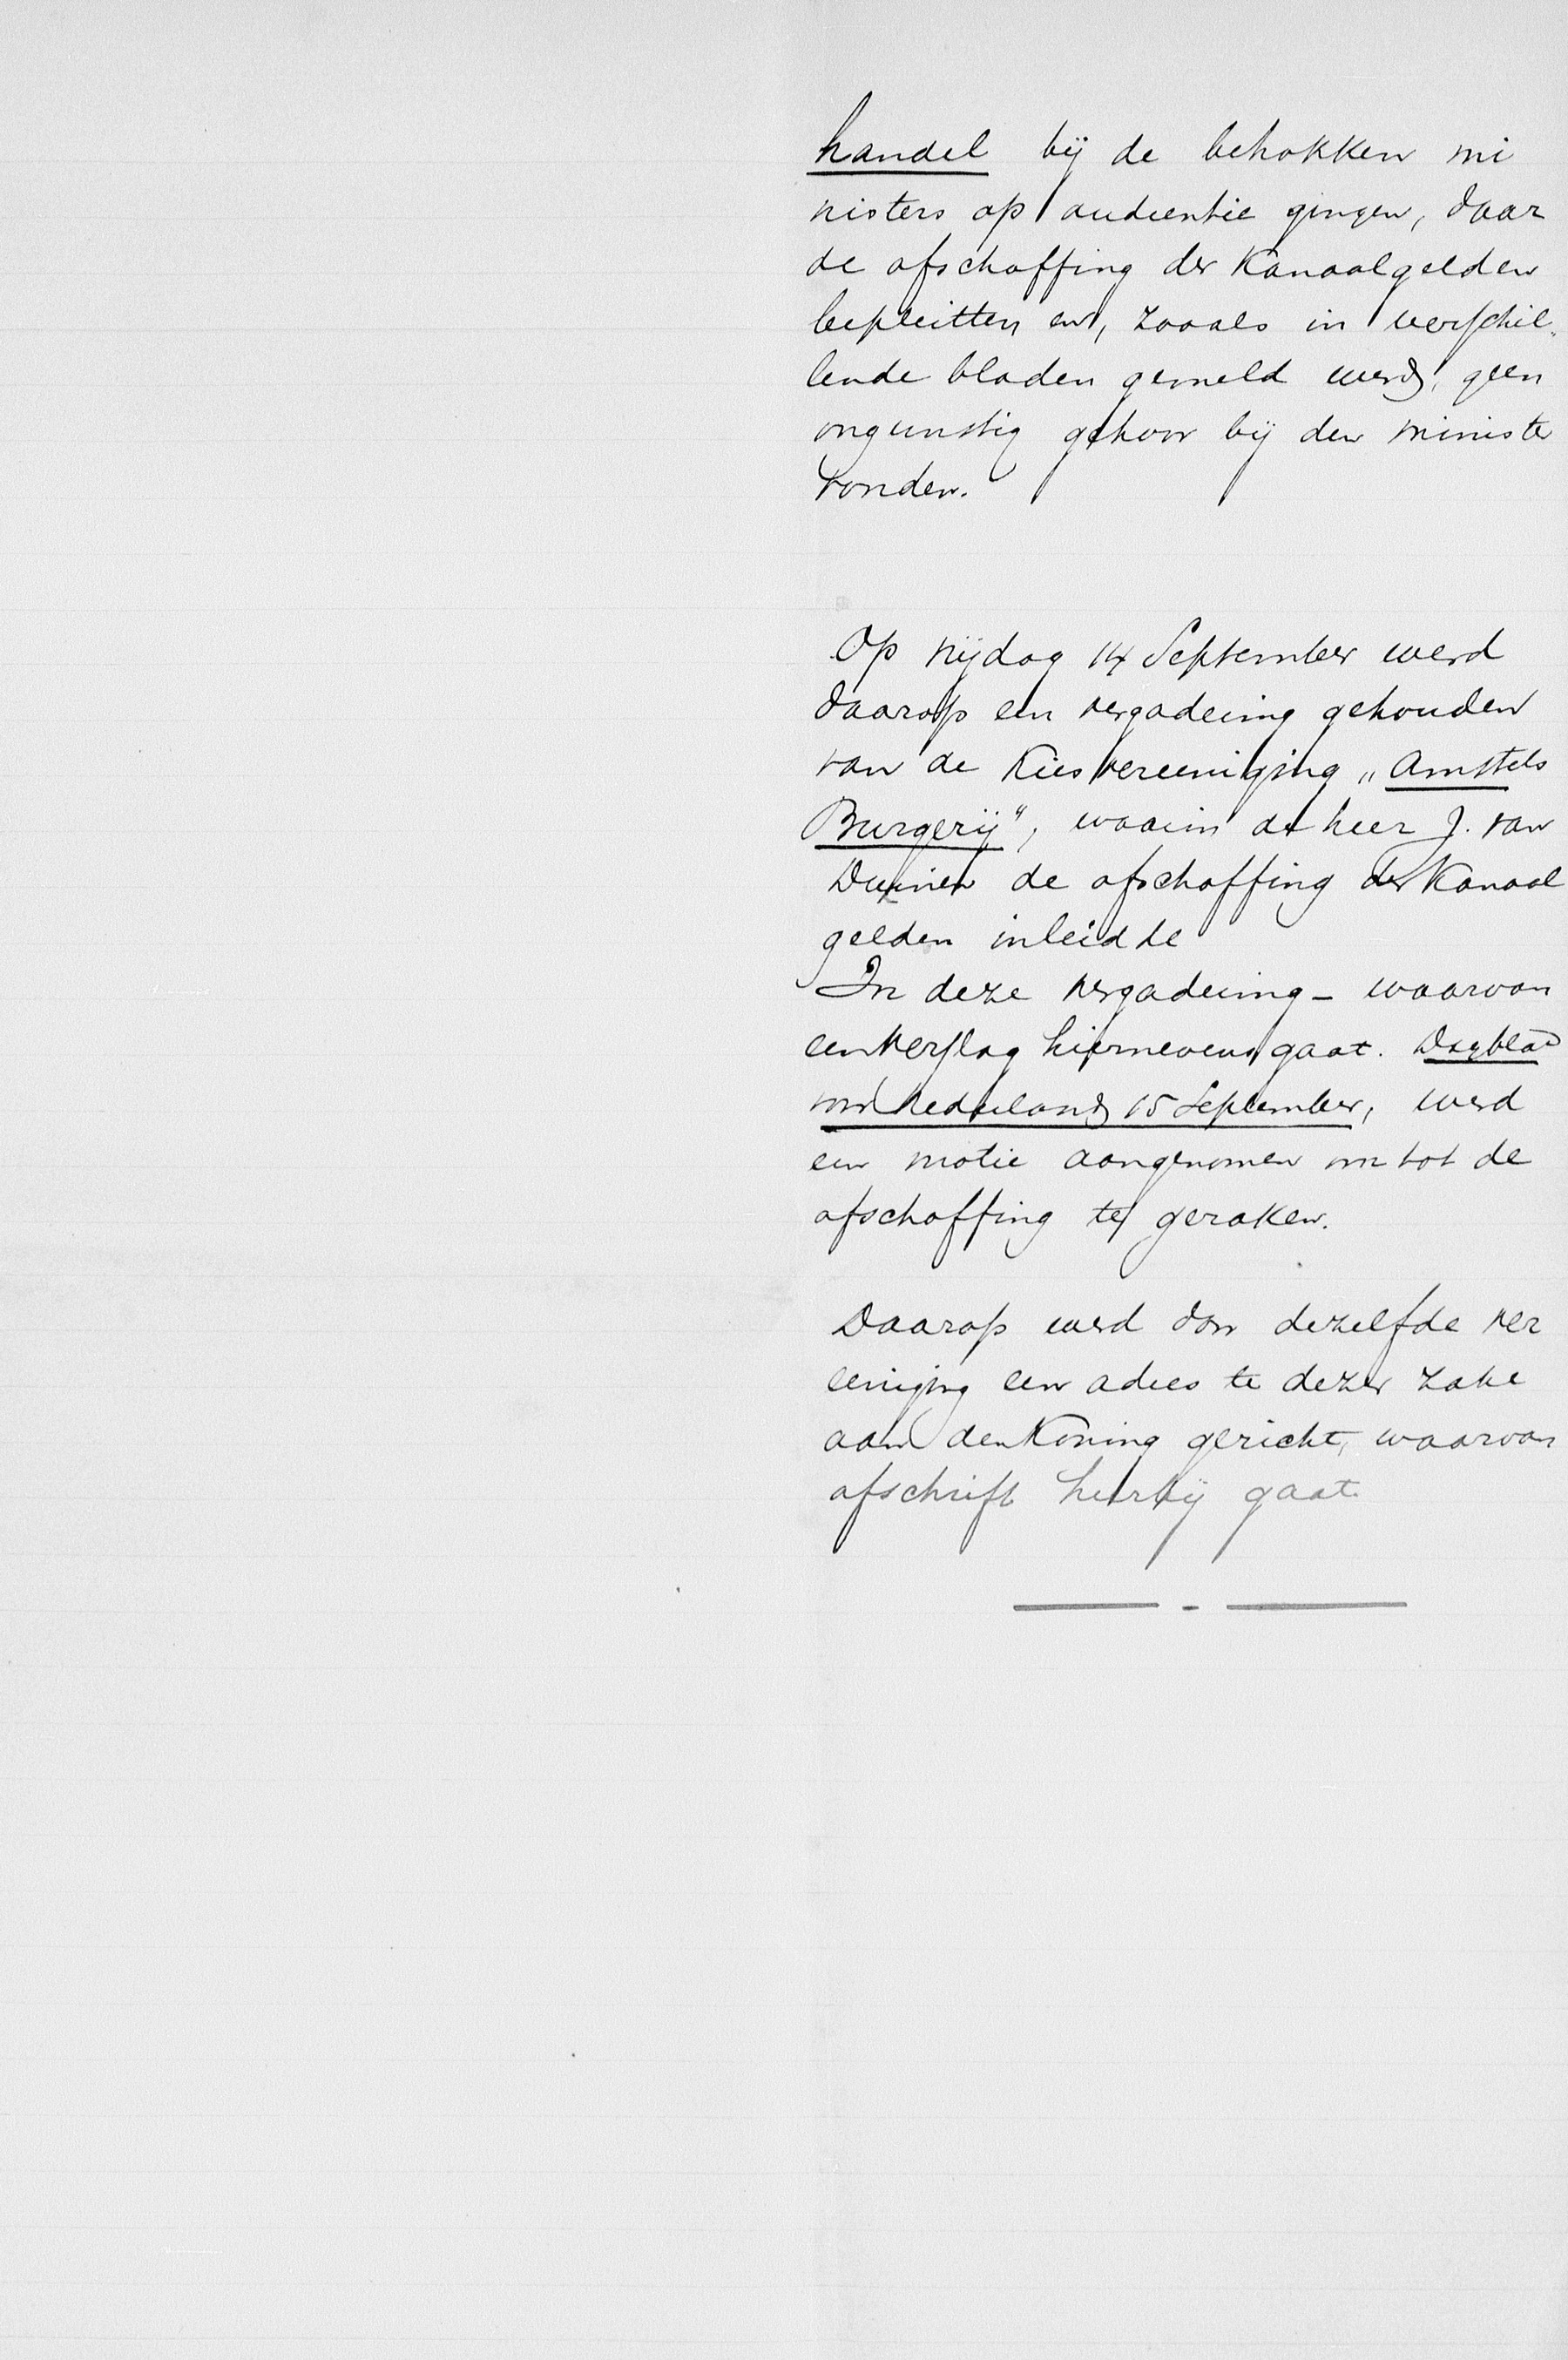 handel bij de betrokken mi
nisters op audientie gingen, daar
de afschaffing der Kanaalgelden
bepleitten en, zooals in verschil-
lende bladen gemeld werd, geen
ongunstig gehoor bij den ministe
vonden.
Op vrijdag 14 September werd
daarop een vergadering gehouden
van de Kiesvereeniging „Amstels
Burgerij", waarin de heer J. van
Duinen de afschaffing der Kanaal
gelden inleidde
In deze vergadering - waarvan
een verslag hiernevens gaat. Dagblad
van Nederland 15 September, werd
een motie aangenomen om tot de
afschaffing te geraken.
Daarop werd door dezelfde ver
eeniging een adres te dezer zake
aan den Koning gericht, waarvan
afschrift hierbij gaat.